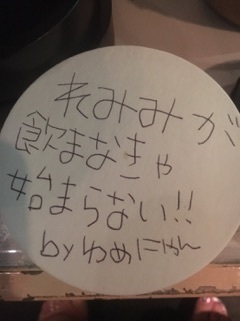 れみみが
飲まなきゃ
始まらない!!
byゆめにゃん